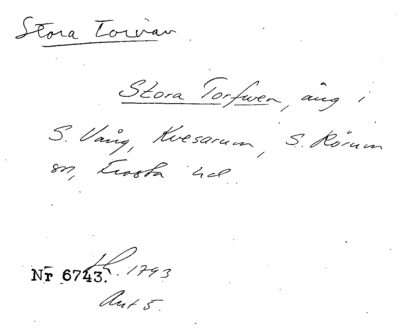 Stora Torvan
Stora Torfwen, äng i
S. Vång, Kvesarum, S. Rörum
sn, Frosta hd.
Nr 6743. 1793
Akt 5.